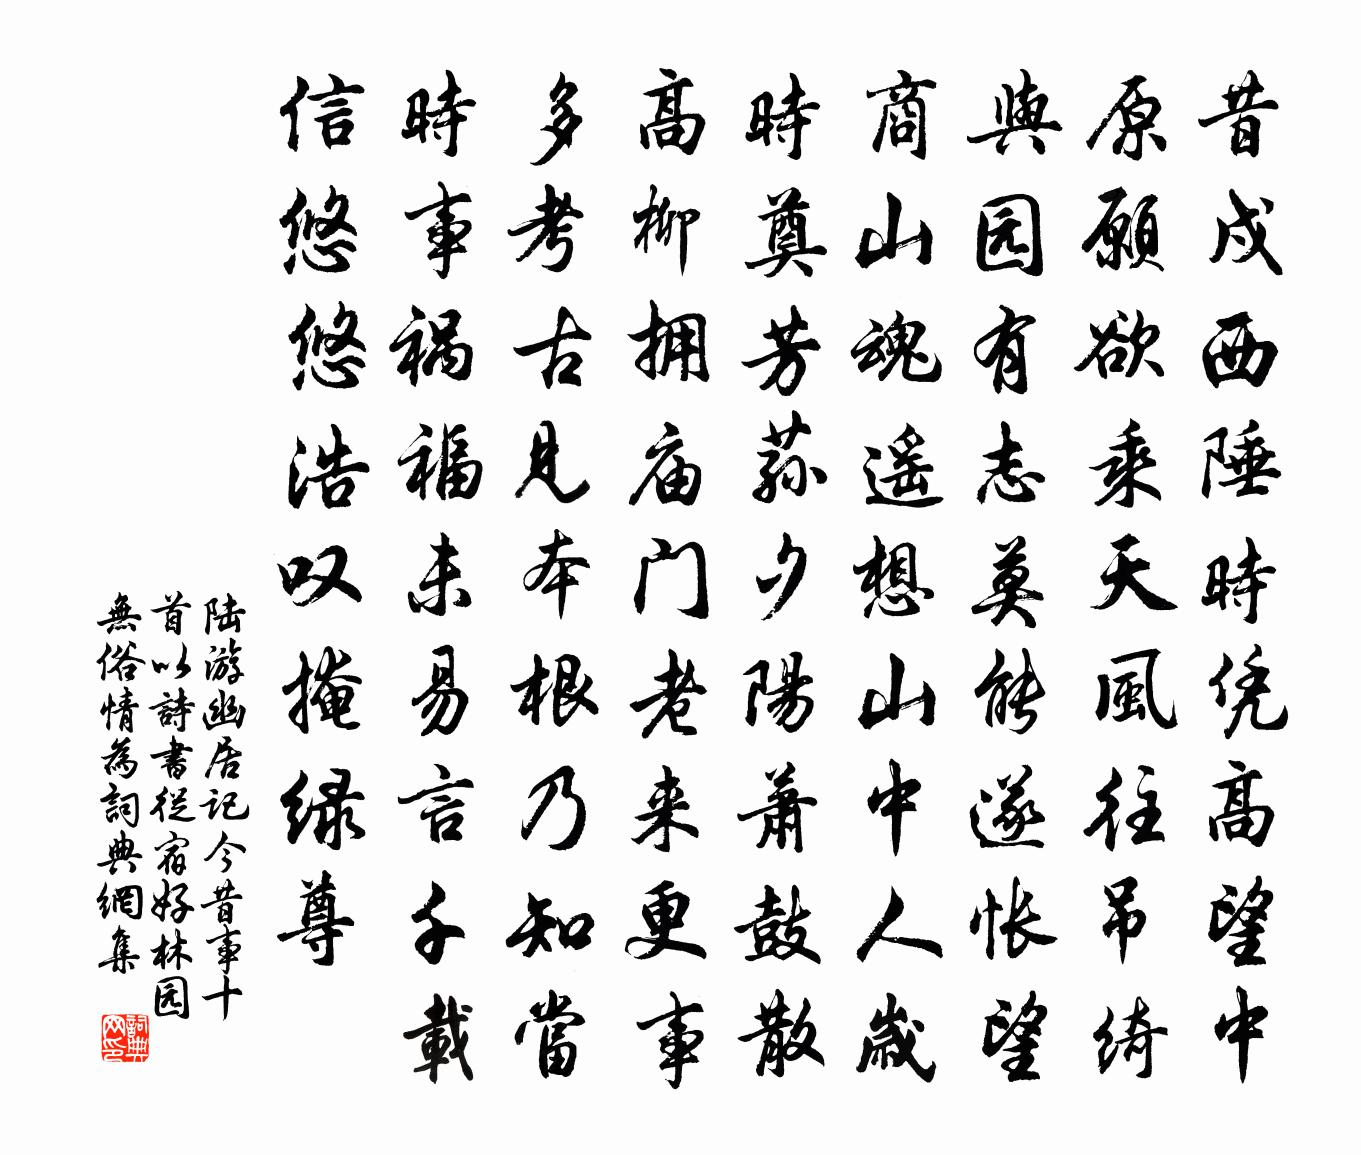 昔戍西陲時凭高望中
原願欲乘天風往吊绮
與园有志莫能遂怅望
商山魂遥想山中人歲
時奠芳荪夕陽萧鼓散
高柳拥庙门老来更事
多考古見本根乃知當
時事祸福未易言千載
信悠悠浩叹掩绿尊
陆游幽居记今昔事十
首以詩書從宿好林园
無俗情為詞典網集
詞典
网印